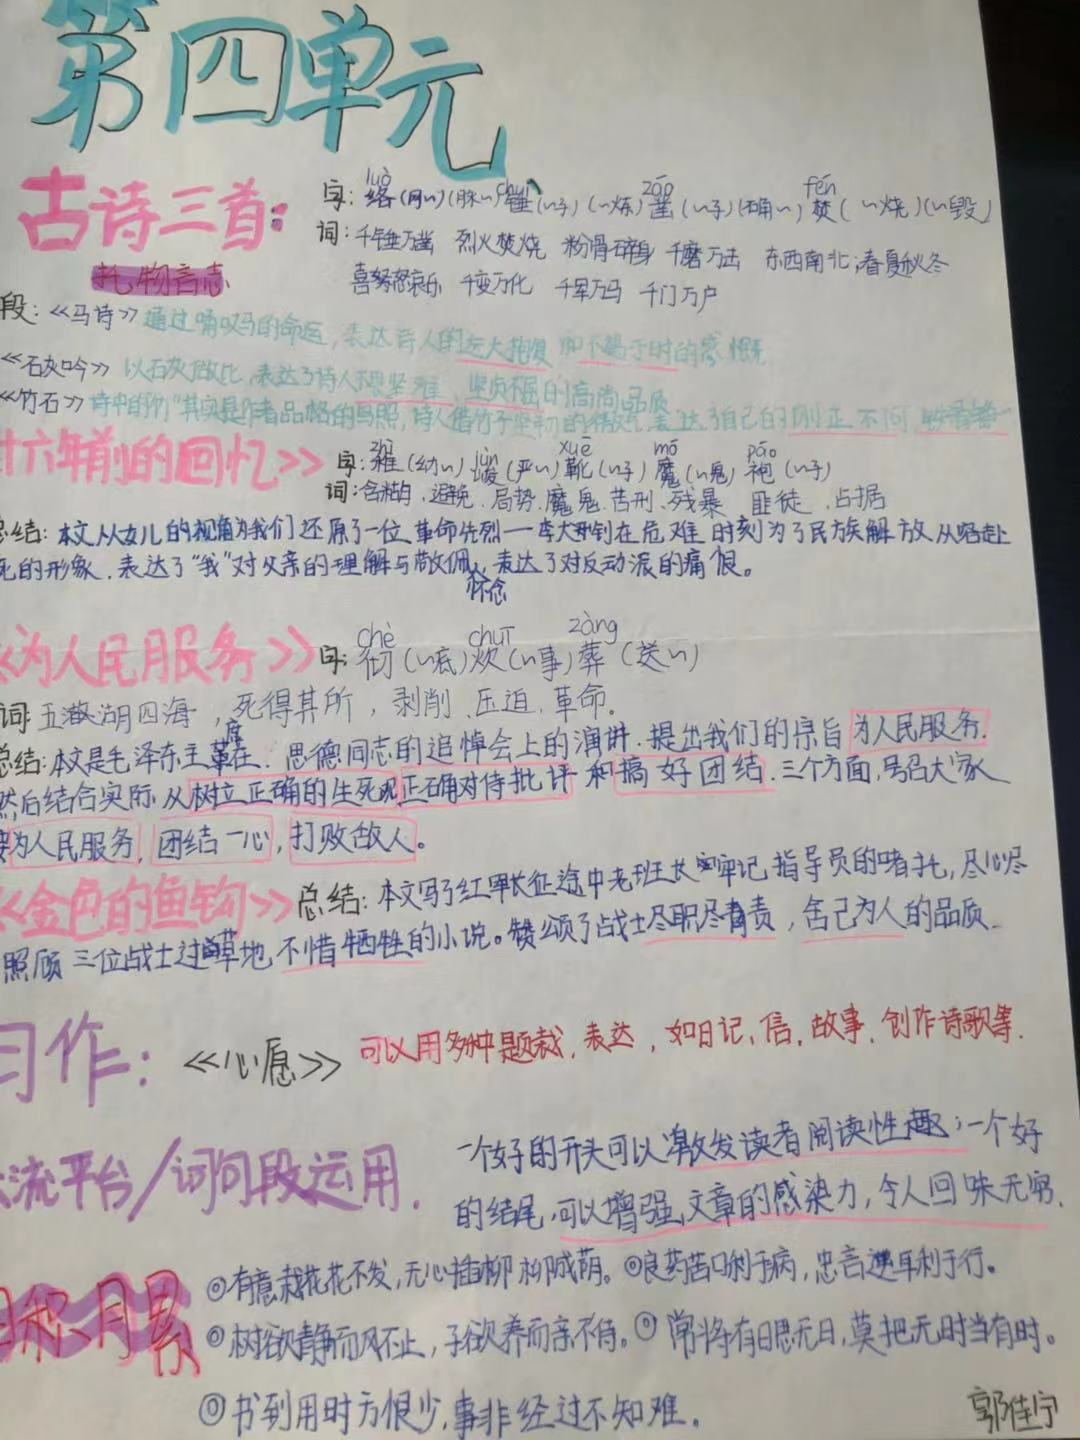 第四单元
古诗三首:
托物言志
luò chuí záo fén
字: 络(网~)(脉~)锤(~子)(~炼)凿(~子)(确~)焚(~烧)(~毁)
词: 千锤万凿 烈火焚烧 粉骨碎身 千磨万击 东西南北;春夏秋冬
喜怒哀乐 千变万化 千军万马 千门万户
段:《马诗》通过咏叹马的命运,表达诗人的远大抱负和不遇于时的感慨
《石灰吟》以石灰做比,表达了诗人不畏艰难、坚贞不屈的高尚品质
《竹石》诗中的竹"其实是作者品格的写照,诗人借竹子坚韧的,表达了自己的刚正不阿
十六年前的回忆》
zhì jùn xuē mó páo
字: 稚(幼~)峻(严~)靴(~子)魔(~鬼)袍(~子)
词: 含糊、避免、局势、魔鬼、苦刑、残暴 匪徒、占据
总结: 本文从女儿的视角为我们还原了一位革命先烈一李大钊在危难时刻为了民族解放从容赴
死的形象,表达了"我"对父亲的理解与敬佩、怀念,表达了对反动派的痛恨。
《为人民服务》
chè chuī zàng
字: 彻(~底)炊(~事)葬(送~)
词: 五湖四海,死得其所,剥削、压迫、革命.
总结: 本文是毛泽东主席在.思德同志的追悼会上的演讲.提出我们的宗旨为人民服务.
然后结合实际从树立正确的生死观正确对待批评和搞好团结.三个方面,号召大家
为人民服务,团结一心,打败敌人。
《金色的鱼钩》总结: 本文写了红军长征途中老班长牢记指导员的嘱托,尽心尽
照顾三位战士过草地,不惜牺牲的小说。赞颂了战士尽职尽责,舍己为人的品质.
习作: 《心愿》 可以用多种题裁,表达,如日记,信,故事,创作诗歌等.
流平台/词句段运用.
一个好的开头可以激发读者阅读性趣;一个好
的结尾,可以增强文章的感染力,令人回味无穷.
日积月累
◎有意栽花花不发,无心插柳柳成荫。◎良药苦口利于病,忠言逆耳利于行。
◎树欲静而风不止,子欲养而亲不待。◎常将有日思无日,莫把无时当有时。
◎书到用时方恨少,事非经过不知难。
郭佳宁